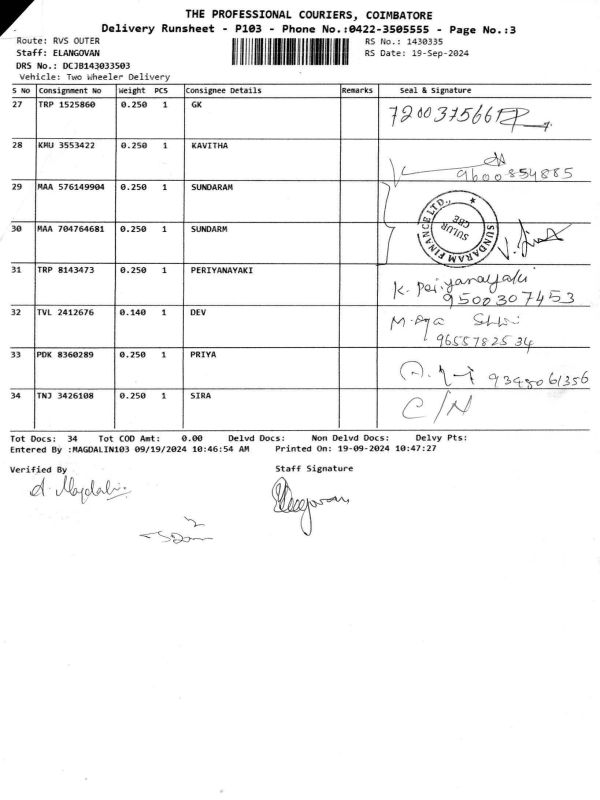 THE PROFESSIONAL COURIERS, COIMBATORE
Delivery Runsheet - P103 - Phone No.:0422-3505555 - Page No.:3
Route: RVS OUTER RS No.: 1430335
Staff: ELANGOVAN RS Date: 19-Sep-2024
DRS No.: DCJB143033503
Vehicle: Two Wheeler Delivery
S No Consignment No Weight PCS Consignee Details Remarks Seal & Signature
27 TRP 1525860 0.250 1 GK 7200375661
28 KMU 3553422 0.250 1 KAVITHA 9600854885
29 MAA 576149904 0.250 1 SUNDARAM
SUNDARAM FINANCE LTD., SULUR CBE
30 MAA 704764681 0.250 1 SUNDARM
31 TRP 8143473 0.250 1 PERIYANAYAKI K. Periyanayaki
9500307453
32 TVL 2412676 0.140 1 DEV
9655782534
33 PDK 8360289 0.250 1 PRIYA
34 TNJ 3426108 0.250 1 SIRA C/N
Tot Docs: 34 Tot COD Amt: 0.00 Delvd Docs: Non Delvd Docs: Delvy Pts:
Entered By :MAGDALIN103 09/19/2024 10:46:54 AM Printed On: 19-09-2024 10:47:27
Verified By Staff Signature
A. Magdalin Elangovan